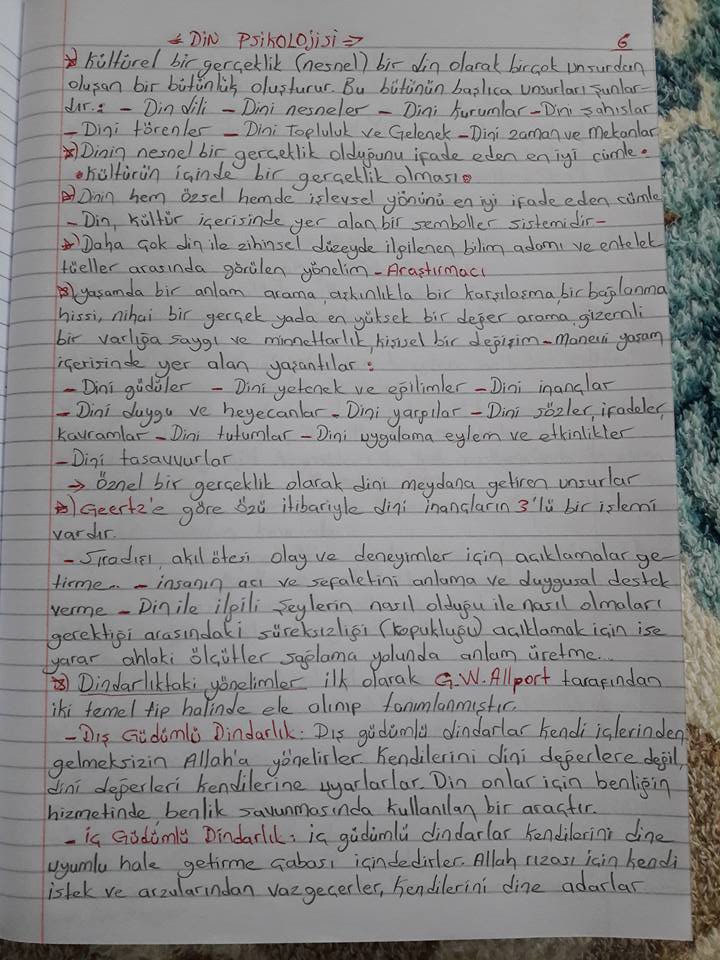 ← DİN PSİKOLOJİSİ → 6
*) Kültürel bir gerçeklik (nesnel) bir din olarak birçok unsurdan
oluşan bir bütünlük oluşturur. Bu bütünün başlıca unsurları şunlar-
dır: - Din dili - Dini nesneler - Dini kurumlar - Dini şahıslar
- Dini törenler - Dini Topluluk ve Gelenek - Dini zaman ve Mekanlar
*) Dinin nesnel bir gerçeklik olduğunu ifade eden en iyi cümle •
• Kültürün içinde bir gerçeklik olması •
*) Dnin hem özsel hemde işlevsel yönünü en iyi ifade eden cümle
- Din, kültür içerisinde yer alan bir semboller sistemidir -
*) Daha çok din ile zihinsel düzeyde ilgilenen bilim adamı ve entelek
tüeller arasında görülen yönelim - Araştırmacı
*) yaşamda bir anlam arama, aşkınlıkla bir karşılaşma, bir bağlanma
hissi, nihai bir gerçek yada en yüksek bir değer arama, gizemli
bir varlığa saygı ve minnettarlık, kişisel bir değişim - Manevi yaşam
içerisinde yer alan yaşantılar :
- Dini güdüler - Dini yetenek ve eğilimler - Dini inançlar
- Dini duygu ve heyecanlar - Dini yargılar - Dini sözler, ifadeler,
kavramlar - Dini tutumlar - Dini uygulama eylem ve etkinlikler
- Dini tasavvurlar
→ Öznel bir gerçeklik olarak dini meydana getiren unsurlar
*) Geertz'e göre özü itibariyle dini inançların 3'lü bir işlemi
vardır.
- Sıradışı, akıl ötesi olay ve deneyimler için açıklamalar ge-
tirme.. - insanın acı ve sefaletini anlama ve duygusal destek
verme - Din ile ilgili şeylerin nasıl olduğu ile nasıl olmaları
gerektiği arasındaki süreksizliği (kopukluğu) açıklamak için işe
yarar ahlaki ölçütler sağlama yolunda anlam üretme...
*) Dindarlıktaki yönelimler ilk olarak G.W.Allport tarafından
iki temel tip halinde ele alınıp tanımlanmıştır.
- Dış Güdümlü Dindarlık : Dış güdümlü dindarlar kendi içlerinden
gelmeksizin Allah'a yönelirler. Kendilerini dini değerlere değil,
dini değerleri kendilerine uyarlarlar. Din onlar için benliğin
hizmetinde, benlik savunmasında kullanılan bir araçtır.
- iç Güdümlü Dindarlık : iç güdümlü dindarlar kendilerini dine
uyumlu hale getirme çabası içindedirler. Allah rızası için kendi
istek ve arzularından vazgeçerler, kendilerini dine adarlar